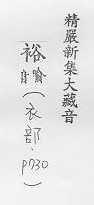 精嚴新集大藏音
裕喻(衣部、p730)